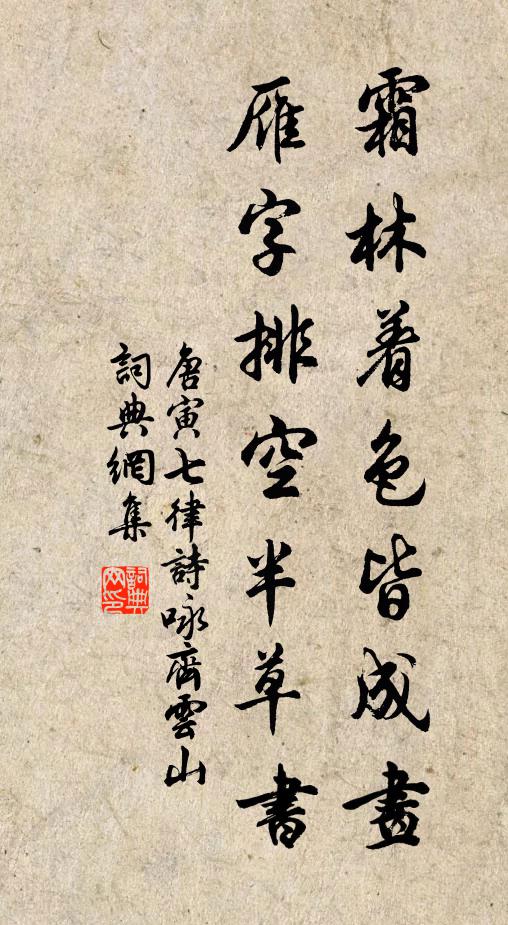 霜林着色皆成畫
雁字排空半草書
唐寅七律詩咏齊雲山
詞典網集
詞典
网印